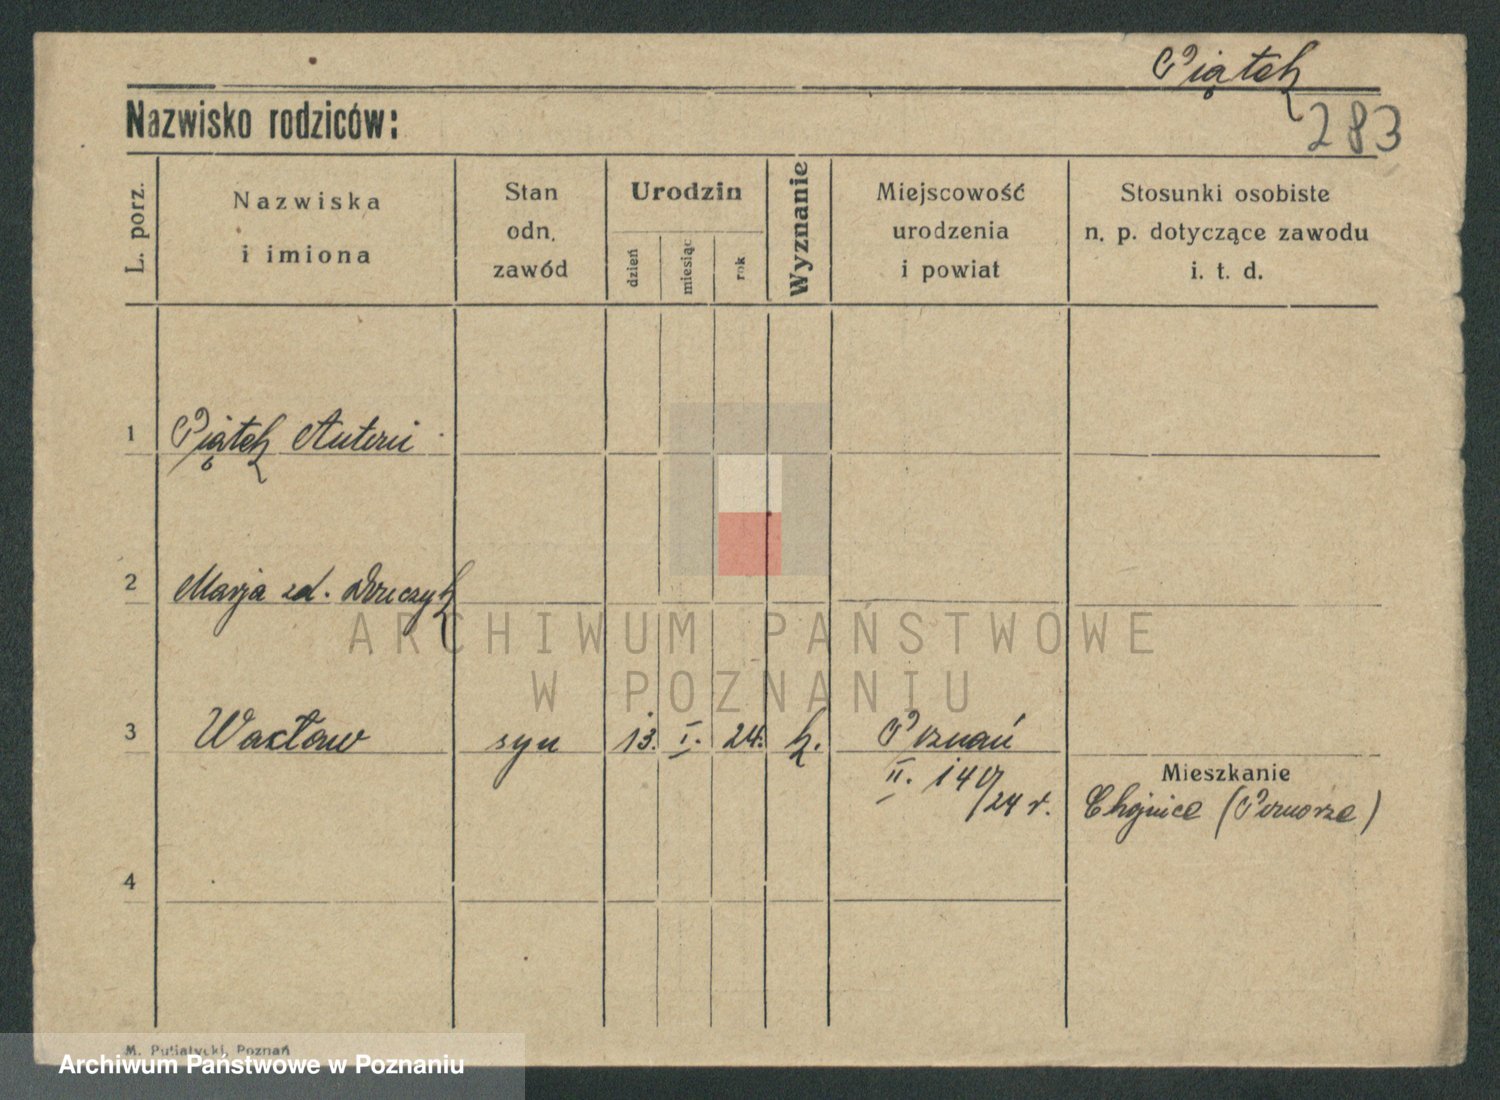 Piątek
Nazwisko rodziców:
283
L. porz.
Nazwiska
i imiona
Stan
odn.
zawód
Urodzin
dzień
miesiąc
rok
Wyznanie
Miejscowość
urodzenia
i powiat
Stosunki osobiste
n. p. dotyczące zawodu
i. t. d.
1 Piątek Antoni
2 Marja zd.
ARCHIWUM PAŃSTWOWE
W POZNANIU
3 Wacław syn 13. I. 24. k. Poznań
II. 140/24 r.
Mieszkanie
Chojnice (Pomorze)
4
M. Putiatycki, Poznań
Archiwum Państwowe w Poznaniu